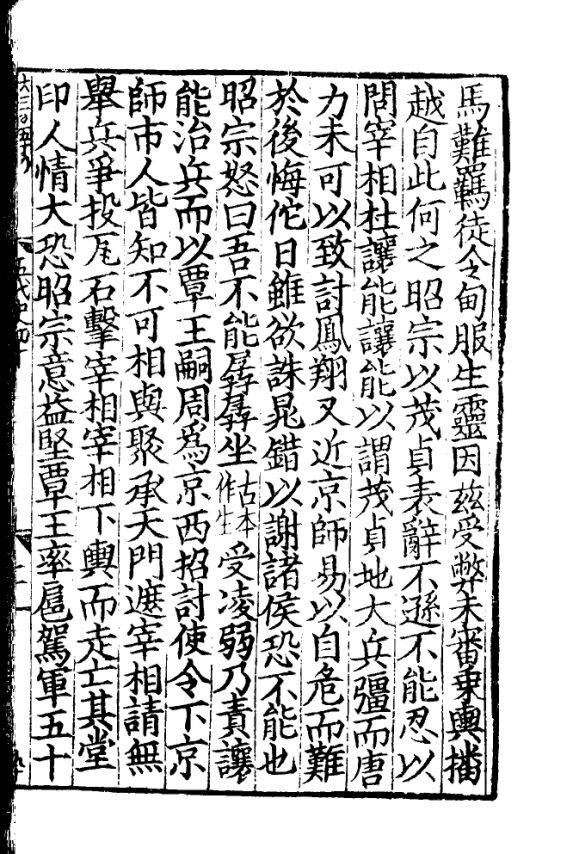 馬難羈徒令甸服生靈因玆受弊未審乗輿播
越自此何之昭宗以茂貞表辭不遜不能忍以
問宰相杜讓能讓能以謂茂貞地大兵彊而唐
力未可以致討鳳翔又近京師易以自危而難
於後悔佗日雖欲誅晁錯以謝諸侯恐不能也
昭宗怒曰吾不能孱孱坐古本作生受凌弱乃責讓
能治兵而以覃王嗣周爲京西招討使令下京
師市人皆知不可相與聚承天門遮宰相請無
舉兵爭投瓦石擊宰相宰相下輿而走亡其堂
印人情大恐昭宗意益堅覃王率扈駕軍五十